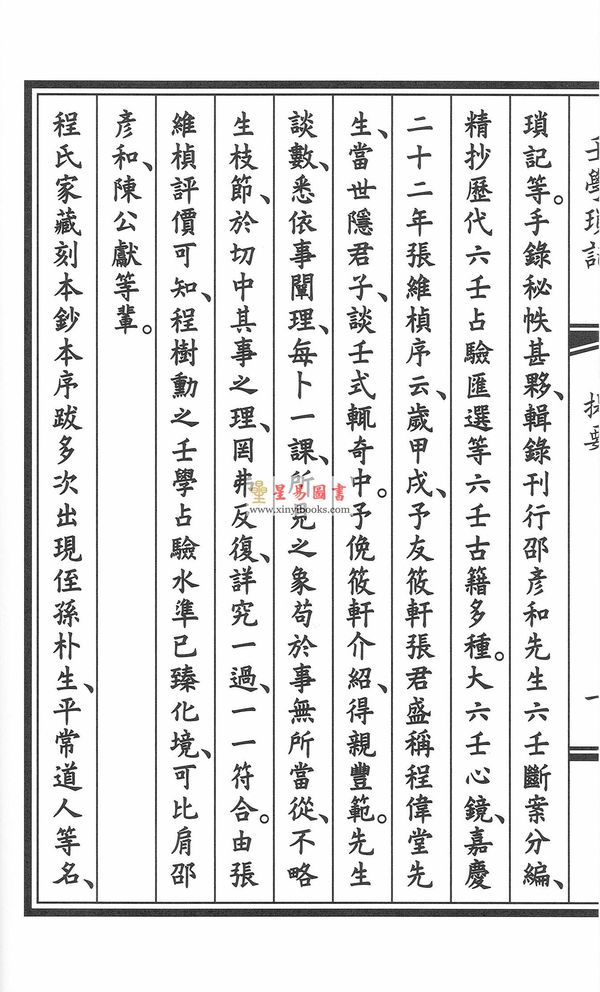 壬學瑣記
提要
一
瑣記等。手錄秘帙甚夥、輯錄刊行邵彥和先生六壬斷案分編、
精抄歷代六壬占驗匯選等六壬古籍多種。大六壬心鏡、嘉慶
二十二年張維楨序云、歲甲戌、予友筱軒張君盛稱程偉堂先
生、當世隱君子、談壬式輒奇中。予俛筱軒介紹、得親豐範。先生
談數、悉依事闡理、每卜一課、所見之象苟於事無所當從、不略
生枝節、於切中其事之理、罔弗反復、詳究一過、一一符合。由張
維楨評價可知、程樹勳之壬學占驗水準已臻化境、可比肩邵
彥和、陳公獻等輩。
程氏家藏刻本鈔本序跋多次出現侄孫朴生、平常道人等名、
星易圖書
www.xinyibooks.com